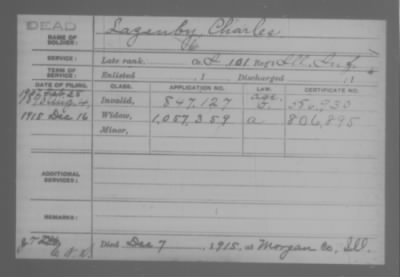 DEAD
NAME OF SOLDIER: Lazenby, Charles
SERVICE: Late rank, Co. I 101 Reg't Ill. Inf.
TERM OF SERVICE: Enlisted , 1 Discharged , 1
DATE OF FILING. CLASS. APPLICATION NO. LAW. CERTIFICATE NO.
Invalid, 847,127
1915 Dec 16 Widow, 1,057,359 a 806,895
Minor,
ADDITIONAL SERVICES:
REMARKS:
Died Dec 7 1915, at Morgan Co, Ill.